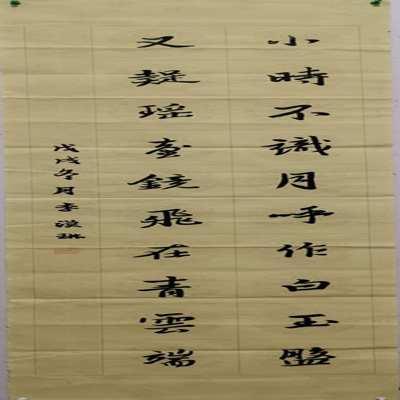 小時不識月呼作白玉盤
又疑瑤臺鏡飛在青雲端
戊戌冬月李漢琳